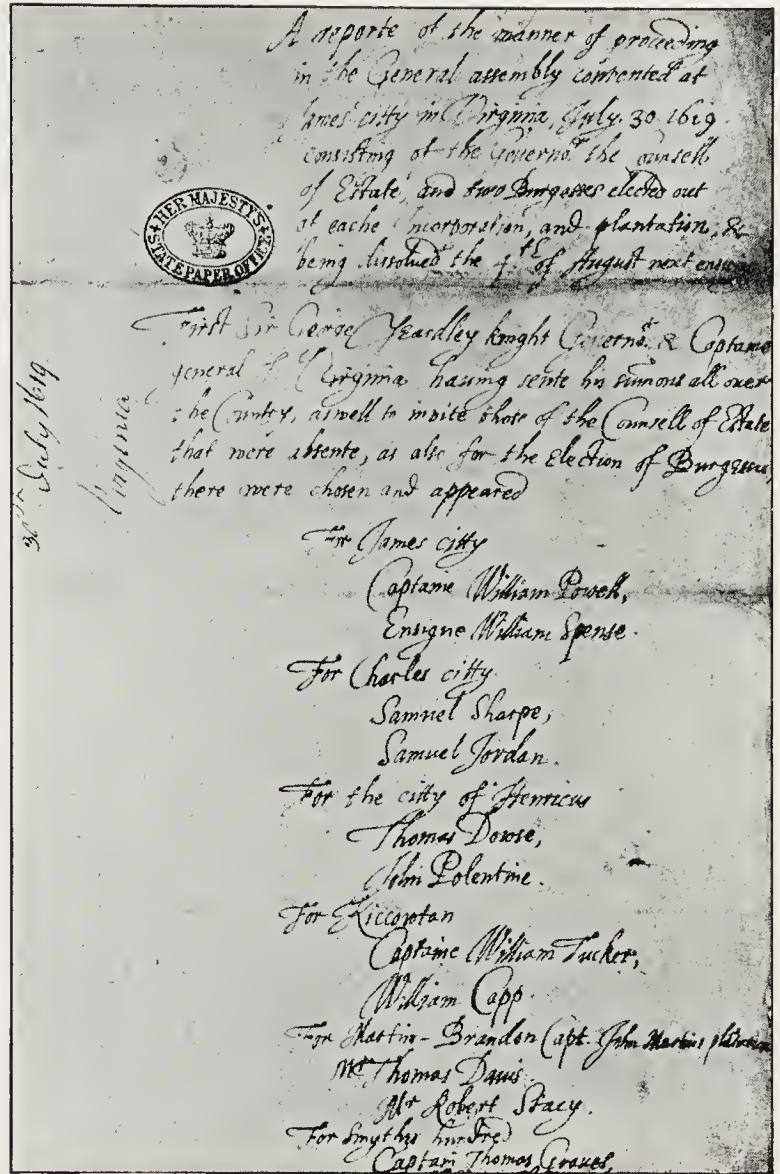 A reporte of the manner of proceeding
in the General assembly convented at
James citty in Virginia, July. 30. 1619.
consisting of the Governor, the Counsell
of Estate, and two Burgesses elected out
of eache Incorporation, and plantation, &
being dissolved the 4th of August next ensuing
HER MAJESTY'S
STATE PAPER OFFICE
30th July 1619
Virginia
First Sir George Yeardley knight Governor & Captaine
general of Virginia, having sente his sumons all over
the Country, aswell to invite those of the Counsell of Estate
that were absente, as also for the Election of Burgesses,
there were chosen and appeared
For James citty
Captaine William Powell,
Ensigne William Spense.
For Charles citty
Samuel Sharpe,
Samuel Jordan.
For the citty of Henricus
Thomas Dowse,
John Polentine.
For Kiccowtan
Captaine William Tucker,
William Capp.
For Martin-Brandon Capt. John Martins plantation
Mr Thomas Davis.
Mr Robert Stacy.
For Smythes hundred
Captain Thomas Graves,